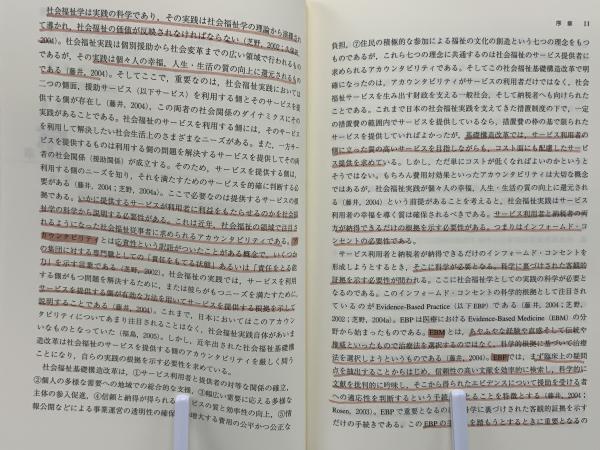 社会福祉学は実践の科学であり，その実践は社会福祉学の理論から演繹され
て導かれ，社会福祉の価値が反映されなければならない（芝野，2002；久保
2004）。社会福祉実践は個別援助から社会変革までの広い領域で行われるもの
であるが，その実践は個々人の幸福，人生・生活の質の向上に還元されるもの
である（藤井，2004）。そしてここで，重要なのは，社会福祉実践においては
二つの側面，援助サービス（以下サービス）を利用する側とそのサービスを提
供する側が存在し（藤井，2004），この両者の社会関係のダイナミクスにその
実践があることである。社会福祉のサービスを利用する側には，そのサービス
を利用して解決したい社会生活上のさまざまなニーズがある。また，一方サービ
スを提供するものは利用する側の問題を解決するサービスを提供してその両
者の社会関係（援助関係）が成立する。そのため，サービスを提供する側は，
利用する側のニーズを知り，それを満たすためのサービスを的確に判断する必
要がある（藤井，2004；芝野，2004a）。ここで必要なのは提供するサービスの根
拠である。いかに提供するサービスが利用者に利益をもたらせるのかを社会福
祉学の科学から説明する必要性がある。これは近年，社会福祉の領域で注目さ
れるようになった社会福祉従事者に求められるアカウンタビリティである。ア
カウンタビリティとは応責性という訳語がついたことがある概念で，いくつか
の集団に対する専門職としての「責任をもてる状態」あるいは「責任をとる能
力」を示す言葉である（芝野，2002）。社会福祉の実践では，サービスを利用
する側がもつ問題を解決するために，または彼らがもつニーズを満たすために，
サービスを提供する側が有効な方法を用いてサービスを提供する根拠を示して
説明することである（藤井，2004）。これまで，日本においてはこのアカウン
タビリティについてあまり注目されることはなく，社会福祉実践自体があいま
いなものとなっていた（福島，2005）。しかし，近年出された社会福祉基礎構
造改革は社会福祉のサービスを提供する側のアカウンタビリティを厳しく問う
ことになり，自らの実践の根拠を示す必要性を求めている。
社会福祉基礎構造改革は，①サービス利用者と提供者の対等な関係の確立，
②個人の多様な需要への地域での総合的な支援，③幅広い需要に応える多様な
主体の参入促進，④信頼と納得が得られるサービスの質と効率性の向上，⑤情
報公開などによる事業運営の透明性の確保，⑥増大する費用の公平かつ公正な
序章 11
負担，⑦住民の積極的な参加による福祉の文化の創造という七つの理念をもつ
ものであるが，これら七つの理念に共通するのは社会福祉のサービス提供者に
求められるアカウンタビリティである。そしてこの社会福祉基礎構造改革で明
確になったのは，アカウンタビリティがサービスの利用者だけではなく，社会福
祉サービスを生み出す財政を支える一般社会，そして納税者へも向けられた
ことである。これまで日本の社会福祉実践を支えてきた措置制度の下で，一定
の措置費の範囲内でサービスを提供しているなら，措置費の枠の基で限られた
サービスを提供していればよかったが，基礎構造改革では，サービス利用者の
側に立った質の高いサービスを目指しながらも，コスト面にも配慮したサービ
ス提供を求めている。しかし，ただ単にコストが低くなればよいのかというと
そうではない。もちろん費用対効果といったアカウンタビリティは大切な概念
ではあるが，社会福祉実践が個々人の幸福，人生・生活の質の向上に還元され
る（藤井，2004）という前提があることを考えると，社会福祉実践はサービス
利用者の幸福を導く質は確保されるべきである。サービス利用者と納税者の両
方が納得できるだけの根拠を示す必要性がある。つまりはインフォームド・コ
ンセントの必要性である。
サービス利用者と納税者が納得できるだけのインフォームド・コンセントを
形成しようとするとき，そこに科学が必要となる。科学に裏づけされた客観的
証拠を示す必要性が問われる。ここに社会福祉学としての実践の科学が必要と
なるのである。このインフォームド・コンセントの科学的根拠として注目され
ているのがEvidence-Based Practice（以下EBP）である（藤井，2004；芝野，
2002；芝野，2004a）。EBPは医療におけるEvidence-Based Medicine（EBM）の分
野から始まったものである。EBMとは，あやふやな経験や直感そして伝統や
権威といったもので治療法を選択するのではなく，科学的根拠に基づいて治療
法を選択しようというものである（藤井，2004）。EBPでは，まず臨床上の疑問
点を抽出することからはじめ，信頼性の高い文献を効率的に検索し，科学的に
文献を批判的に吟味し，そこから得られたエビデンスについて援助を受ける者
への適応性を判断するという手続きをとることを特徴とする（藤井，2004；
Rosen，2003）。EBPで重要となるのは科学に裏づけされた客観的証拠を示す
だけの手続きである。このEBPの手続きを踏もうとするときに重要となるの